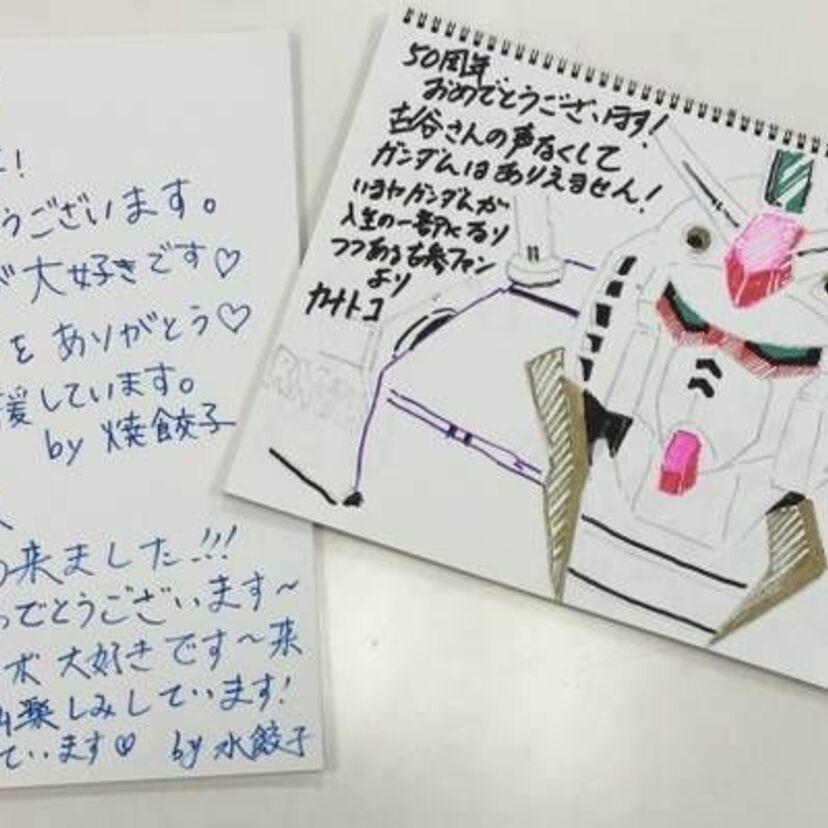 ！
うございます。
大好きです♡
をありがとう♡
援しています。
by 焼餃子
来ました!!!
でとうございます〜
ボ 大好きです〜来
楽しみしています!
ています♡ by 水餃子
50周年
おめでとうございます!
古谷さんの声なくして
ガンダムはありえません!
いまやガンダムが
人生の一部になり
つつある古参ファン
より
カナトコ